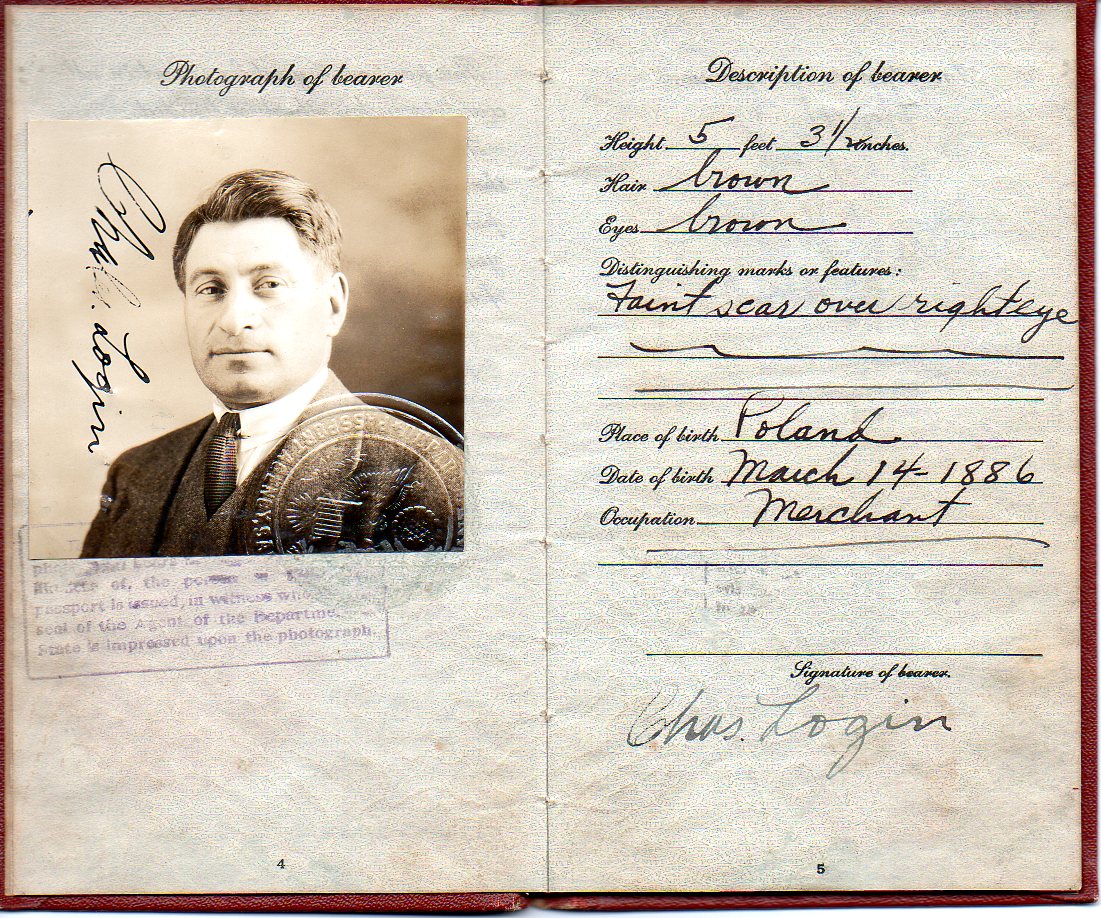 Photograph of bearer
Chas. Login
of, the person
passport is issued, in witness
seal of the Agent of the Departme
State is impressed upon the photograph.
4
Description of bearer
Height 5 feet 3 1/2 inches.
Hair brown
Eyes brown
Distinguishing marks or features:
Faint scar over right eye
Place of birth Poland
Date of birth March 14 - 1886
Occupation Merchant
Signature of bearer.
Chas. Login
5